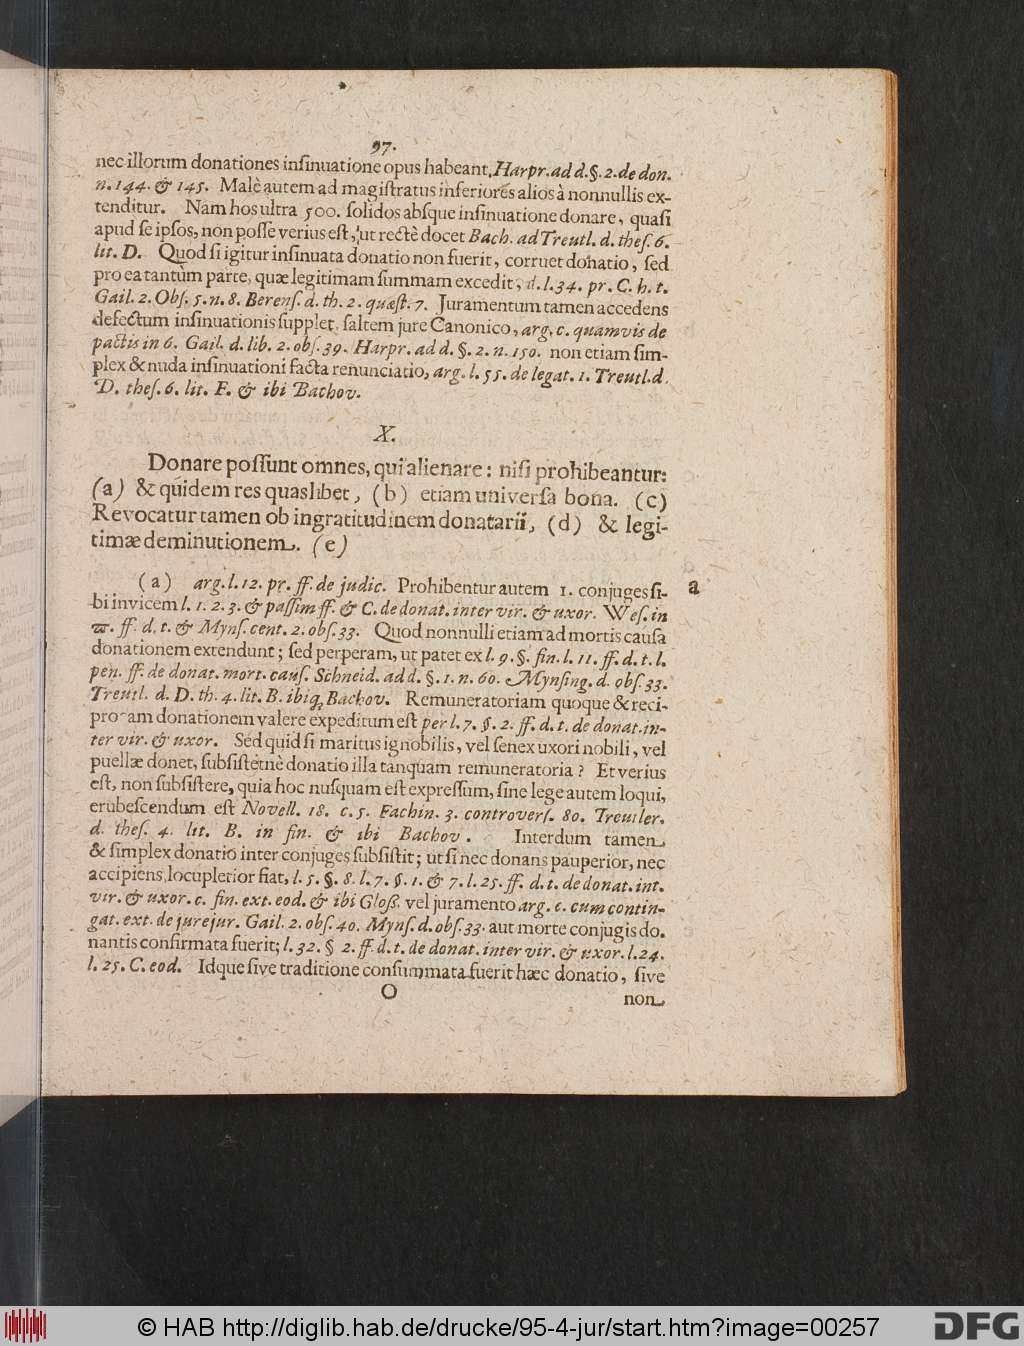 97.
nec illorum donationes insinuatione opus habeant, Harpr. ad d. §. 2. de don.
n. 144. & 145. Malè autem ad magistratus inferiores alios à nonnullis ex-
tenditur. Nam hos ultra 500. solidos absque insinuatione donare, quasi
apud se ipsos, non posse verius est, ut rectè docet Bach. ad Treutl. d. thes. 6.
lit. D. Quod si igitur insinuata donatio non fuerit, corruet donatio, sed
pro ea tantùm parte, quæ legitimam summam excedit, d. l. 34. pr. C. h. t.
Gail. 2. Obs. 5. n. 8. Berens. d. th. 2. quæst. 7. Juramentum tamen accedens
defectum insinuationis supplet, saltem jure Canonico, arg. c. quamvis de
pactis in 6. Gail. d. lib. 2. obs. 39. Harpr. ad d. §. 2. n. 150. non etiam sim-
plex & nuda insinuationi facta renunciatio, arg. l. 55. de legat. 1. Treutl. d.
D. thes. 6. lit. F. & ibi Bachov.
X.
Donare possunt omnes, qui alienare: nisi prohibeantur:
(a) & quidem res quaslibet, (b) etiam universa bona. (c)
Revocatur tamen ob ingratitudinem donatarii, (d) & legi-
timæ deminutionem. (e)
(a) arg. l. 12. pr. ff. de judic. Prohibentur autem 1. conjuges si- a
bi invicem l. 1. 2. 3. & passim ff. & C. de donat. inter vir. & uxor. Wes. in
ϖ. ff. d. t. & Myns. cent. 2. obs. 33. Quod nonnulli etiam ad mortis causa
donationem extendunt; sed perperam, ut patet ex l. 9. §. fin. l. 11. ff. d. t. l.
pen. ff. de donat. mort. caus. Schneid. ad d. §. 1. n. 60. Mynsing. d. obs. 33.
Treutl. d. D. th. 4. lit. B. ibiq; Bachov. Remuneratoriam quoque & reci-
procam donationem valere expeditum est per l. 7. §. 2. ff. d. t. de donat. in-
ter vir. & uxor. Sed quid si maritus ignobilis, vel senex uxori nobili, vel
puellæ donet, subsistètnè donatio illa tanquam remuneratoria? Et verius
est, non subsistere, quia hoc nusquam est expressum, sine lege autem loqui,
erubescendum est Novell. 18. c. 5. Fachin. 3. controvers. 80. Treutler.
d. thes. 4. lit. B. in fin. & ibi Bachov. Interdum tamen
& simplex donatio inter conjuges subsistit; ut si nec donans pauperior, nec
accipiens, locupletior fiat, l. 5. §. 8. l. 7. §. 1. & 7. l. 25. ff. d. t. de donat. int.
vir. & uxor. c. fin. ext. eod. & ibi Gloß. vel juramento arg. c. cum contin-
gat. ext. de jurejur. Gail. 2. obs. 40. Myns. d. obs. 33. aut morte conjugis do-
nantis confirmata fuerit; l. 32. § 2. ff. d. t. de donat. inter vir. & uxor. l. 24.
l. 25. C. eod. Idque sive traditione consummata fuerit hæc donatio, sive
O
non
© HAB http://diglib.hab.de/drucke/95-4-jur/start.htm?image=00257
DFG